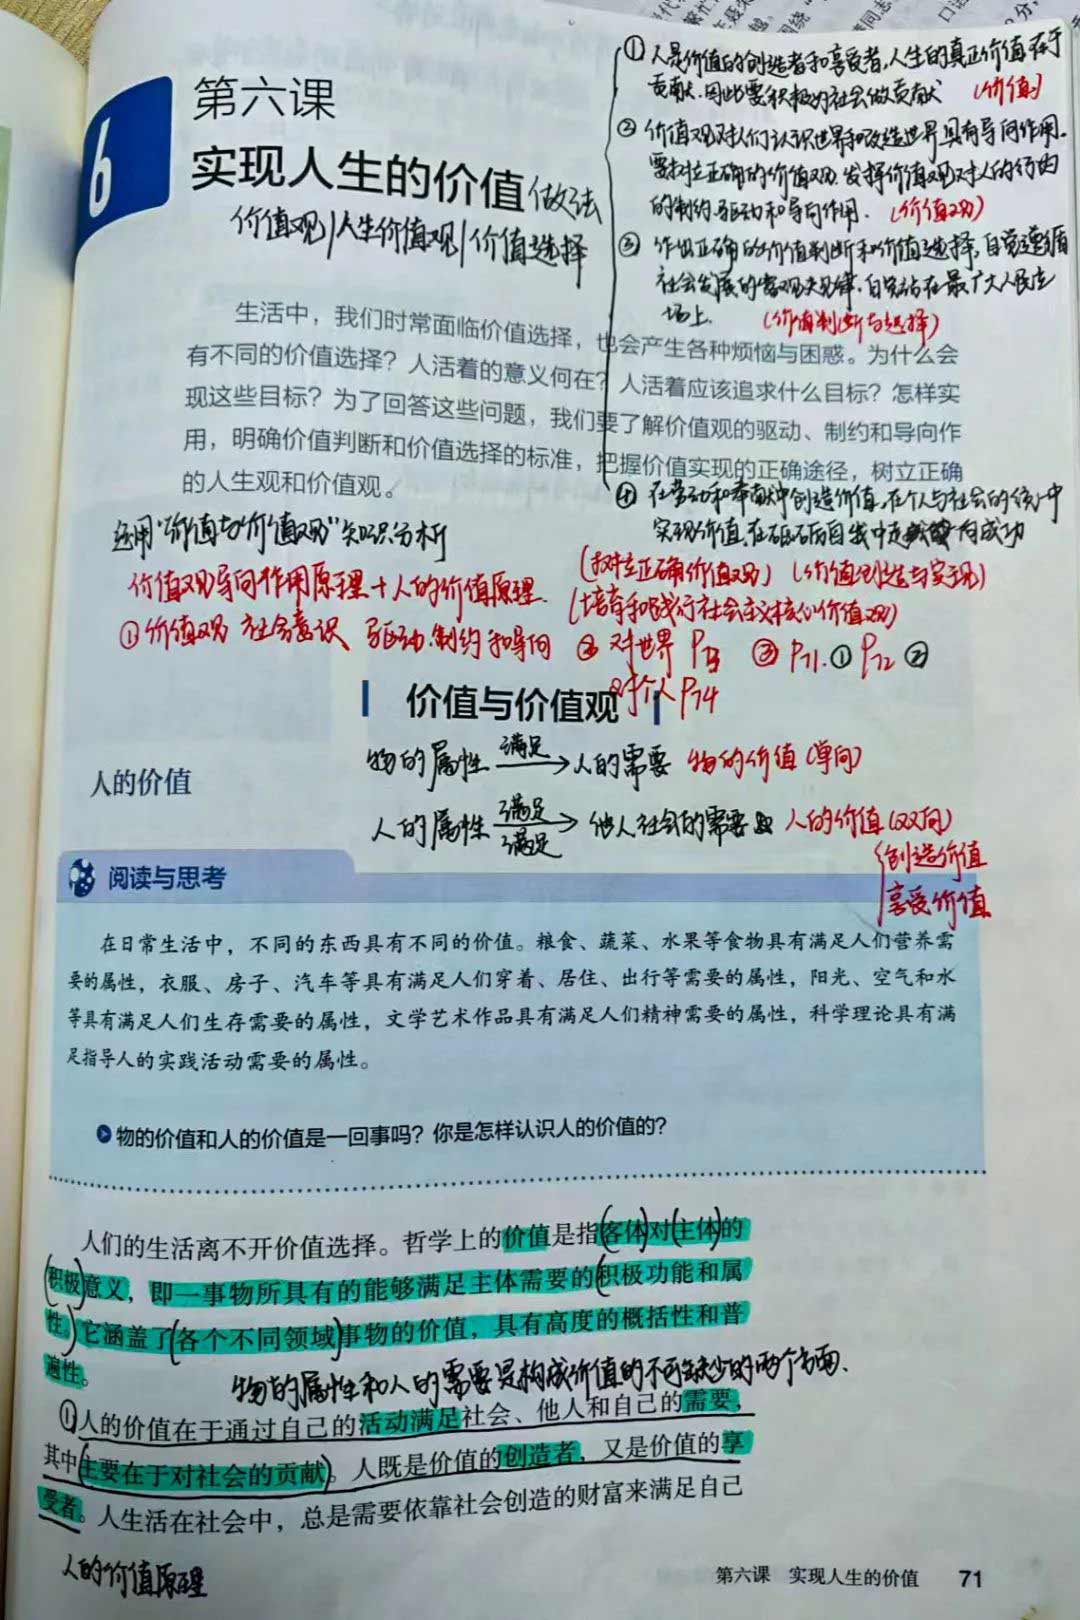 6
第六课
实现人生的价值 做法
价值观/人生价值观/价值选择
①人是价值的创造者和享受者,人生的真正价值在于
贡献.因此要积极为社会做贡献 (价值)
②价值观对人们认识世界和改造世界具有导向作用.
需树立正确的价值观.发挥价值观对人的行为
的制约.驱动和导向作用. (价值观)
③作出正确的价值判断和价值选择,自觉遵循
社会发展的客观规律.自觉站在最广大人民立
场上. (价值判断与选择)
生活中，我们时常面临价值选择，也会产生各种烦恼与困惑。为什么会
有不同的价值选择？人活着的意义何在？人活着应该追求什么目标？怎样实
现这些目标？为了回答这些问题，我们要了解价值观的驱动、制约和导向作
用，明确价值判断和价值选择的标准，把握价值实现的正确途径，树立正确
的人生观和价值观。
④在劳动和奉献中创造价值,在个人与社会的统一中
实现价值,在砥砺自我中走向成功
运用"价值与价值观"知识分析
(树立正确价值观) (价值创造与实现)
价值观导向作用原理+人的价值原理. (培育和践行社会主义核心价值观)
①价值观 社会意识 驱动.制约和导向 ②对世界 P73 ③P71.①P72②
对个人P74
价值与价值观
物的属性 满足→ 人的需要 物的价值(单向)
人的价值
人的属性 满足→ 他人社会的需要 人的价值(双向)
满足
创造价值
享受价值
阅读与思考
在日常生活中，不同的东西具有不同的价值。粮食、蔬菜、水果等食物具有满足人们营养需
要的属性，衣服、房子、汽车等具有满足人们穿着、居住、出行等需要的属性，阳光、空气和水
等具有满足人们生存需要的属性，文学艺术作品具有满足人们精神需要的属性，科学理论具有满
足指导人的实践活动需要的属性。
物的价值和人的价值是一回事吗？你是怎样认识人的价值的？
人们的生活离不开价值选择。哲学上的价值是指(客体)对(主体)的
(积极)意义，即一事物所具有的能够满足主体需要的(积极功能和属
性。)它涵盖了(各个不同领域)事物的价值，具有高度的概括性和普
遍性。
物的属性和人的需要是构成价值的不可缺少的两个方面.
①人的价值在于通过自己的活动满足社会、他人和自己的需要，
其中(主要在于对社会的贡献)。人既是价值的创造者，又是价值的享
受者。人生活在社会中，总是需要依靠社会创造的财富来满足自己
人的价值原理
第六课 实现人生的价值 71